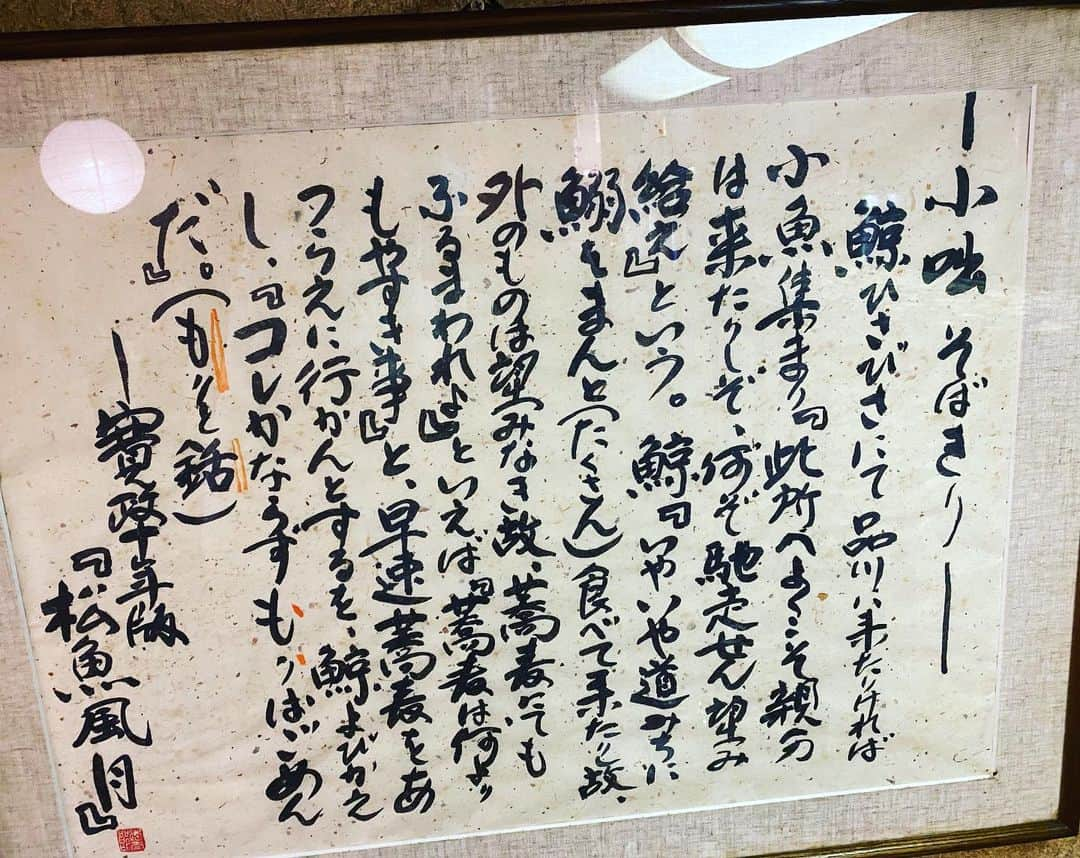 ―小咄 そばきり―
鯨ひさびさにて品川に来たければ
小魚集まり『此所へようこそ親分
は来たりしぞ、何ぞ馳走せん望み
給え』という。鯨『いやいや道みちに
鰯をまんと(たくさん)食べて来たり故、
外のものは望みなき故、蕎麦にても
ふるまわれよ』といえば『蕎麦は何より
もやすき事』と、早速蕎麦をあ
つらえに行かんとするを、鯨よびかえ
し、『コレかならずもりはごめん
だ。』(もりと銛)
―寛政十年版
『松魚風月』